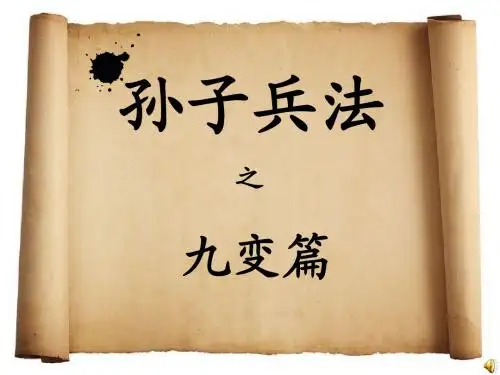 孙子兵法
之
九变篇